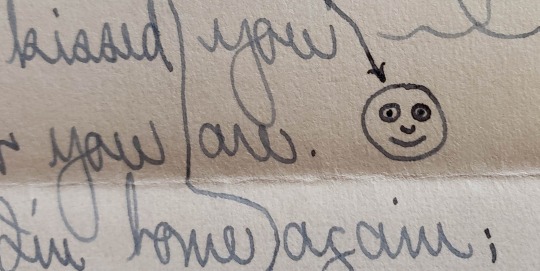 kissed you
you are.
home again;